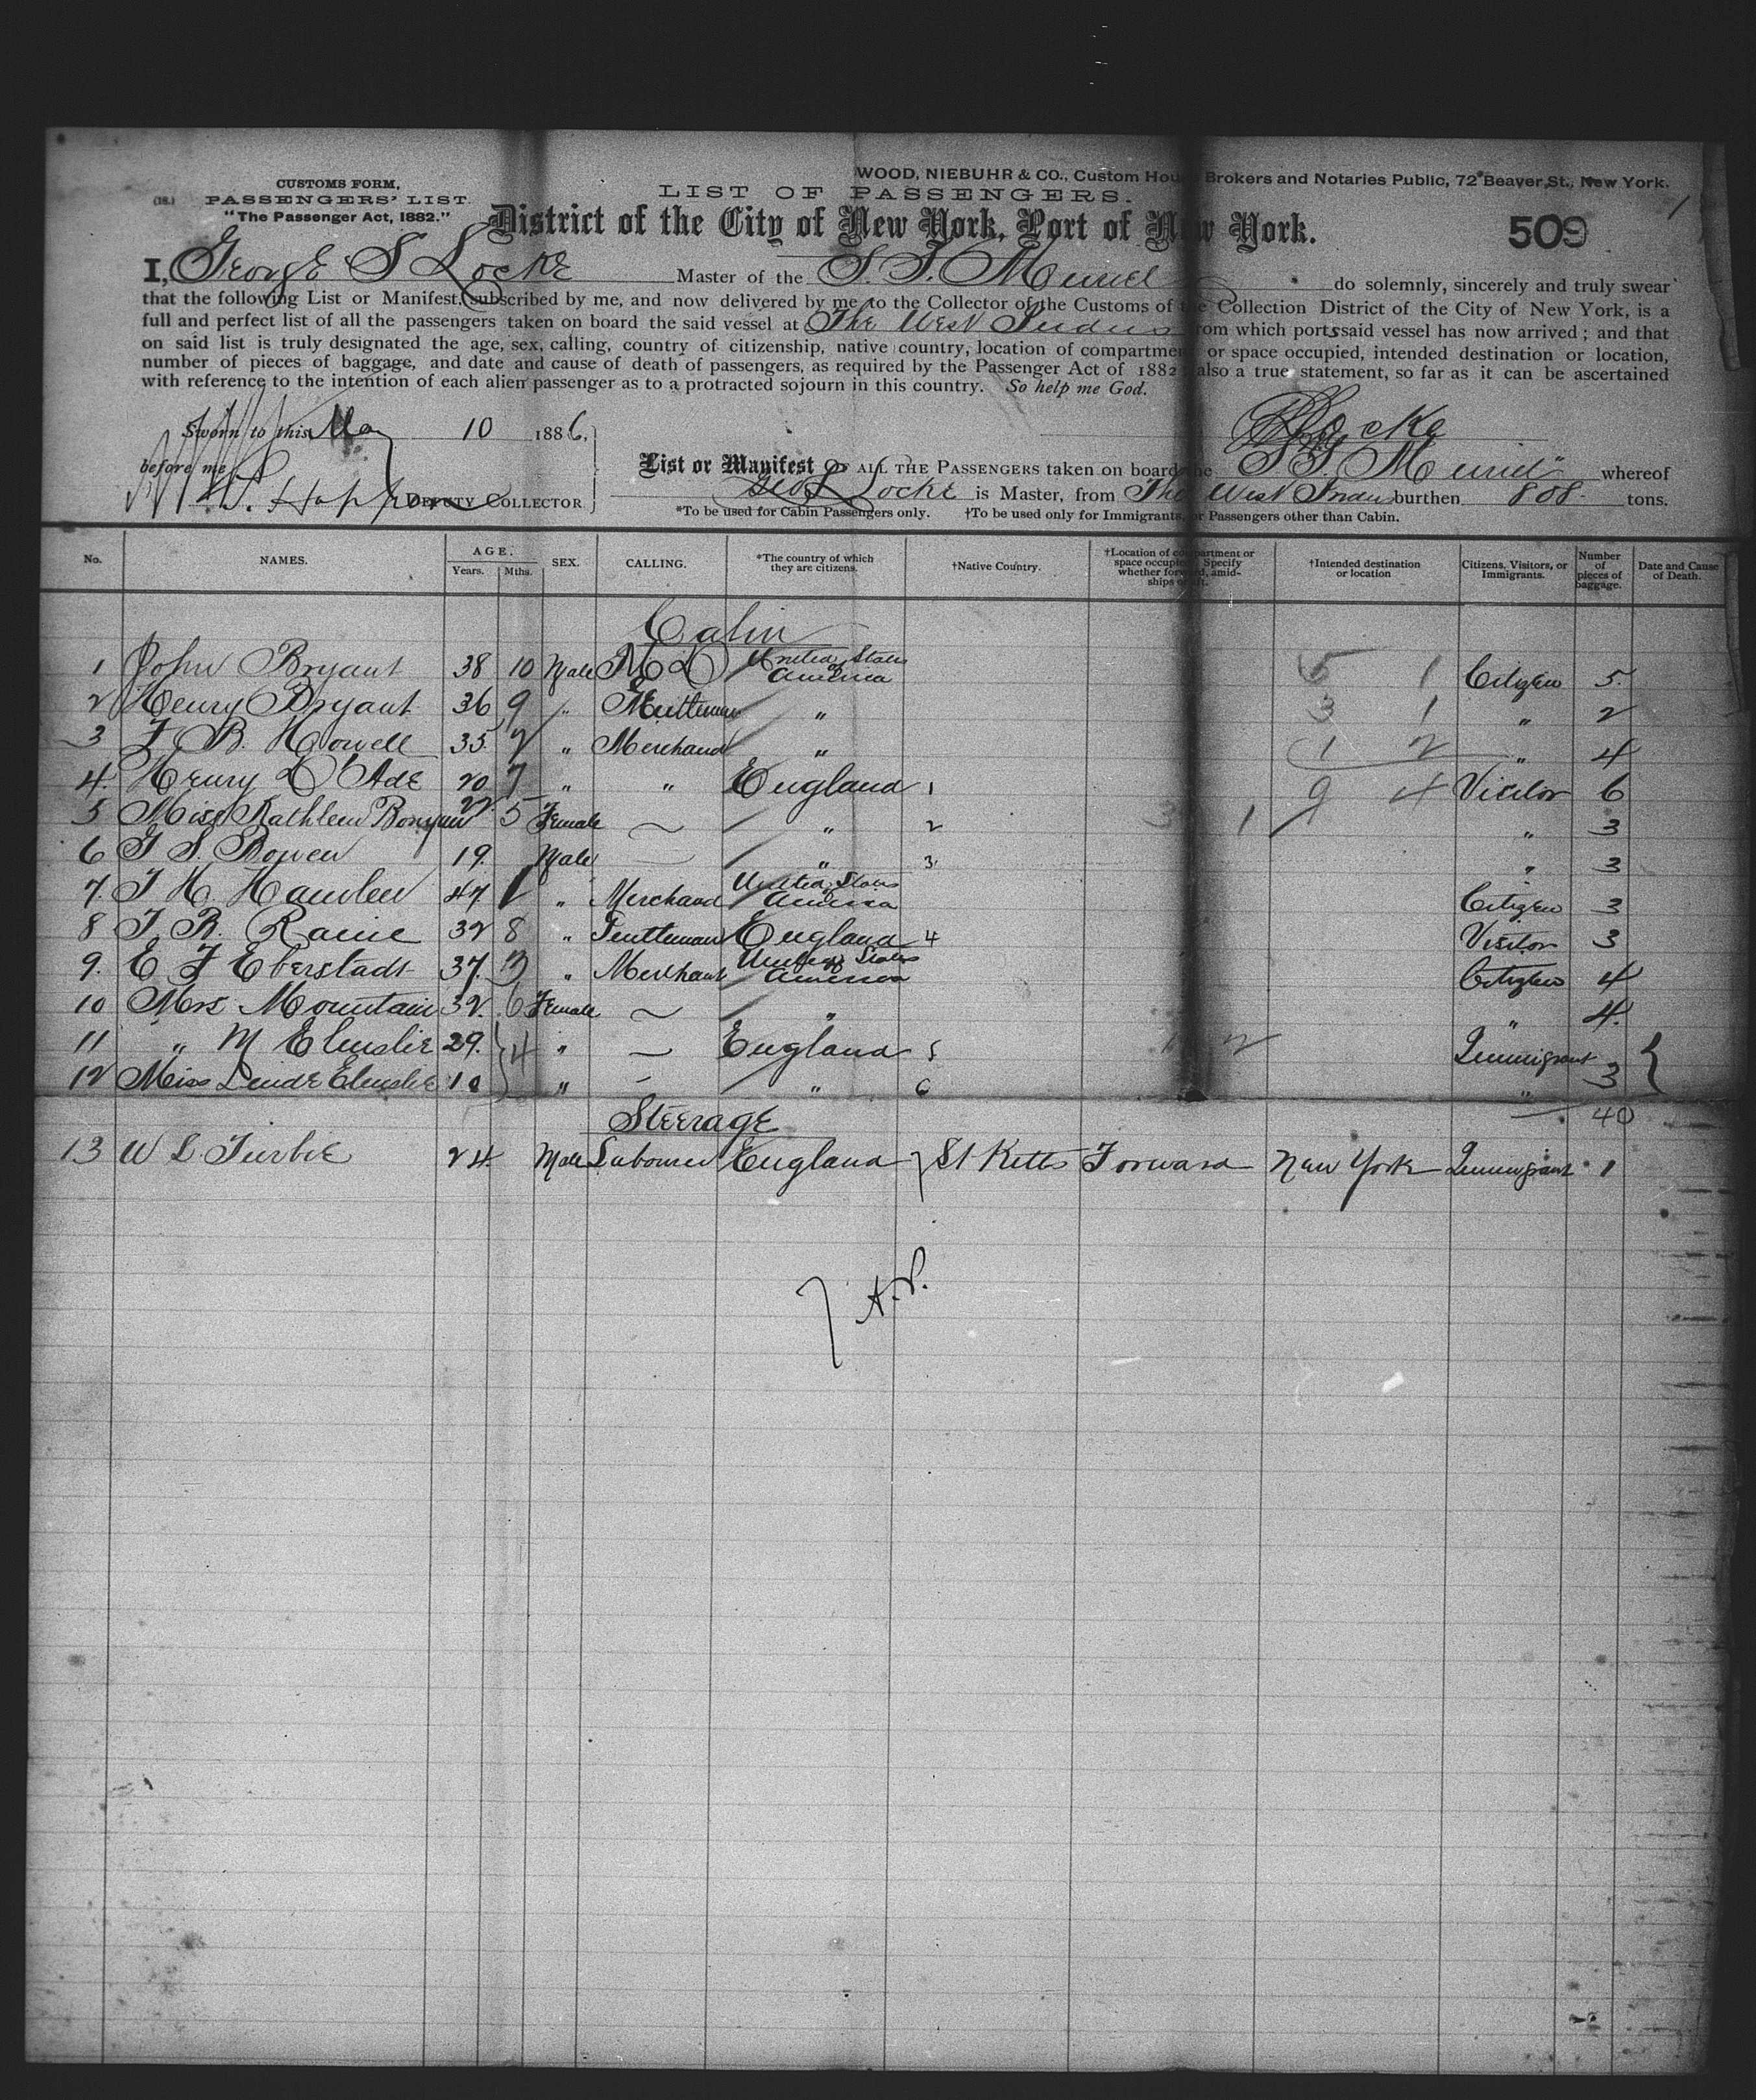 WOOD, NIEBUHR & CO., Custom House Brokers and Notaries Public, 72 Beaver St., New York.
CUSTOMS FORM,
(18.) PASSENGERS' LIST.
"The Passenger Act, 1882."
LIST OF PASSENGERS.
District of the City of New York, Port of New York.
509
1
I, George S Locke Master of the S.S. Muriel do solemnly, sincerely and truly swear
that the following List or Manifest, subscribed by me, and now delivered by me to the Collector of the Customs of the Collection District of the City of New York, is a
full and perfect list of all the passengers taken on board the said vessel at The West Indies from which ports said vessel has now arrived; and that
on said list is truly designated the age, sex, calling, country of citizenship, native country, location of compartment or space occupied, intended destination or location,
number of pieces of baggage, and date and cause of death of passengers, as required by the Passenger Act of 1882 also a true statement, so far as it can be ascertained
with reference to the intention of each alien passenger as to a protracted sojourn in this country. So help me God.
Sworn to this May 10 1886,
Locke
before me
DEPUTY COLLECTOR
List or Manifest OF ALL THE PASSENGERS taken on board the S.S. Muriel whereof
Geo S Locke is Master, from The West Indies burthen 808 tons.
*To be used for Cabin Passengers only. †To be used only for Immigrants, or Passengers other than Cabin.
No. NAMES. AGE. Years. Mths. SEX. CALLING. *The country of which they are citizens. †Native Country. †Location of compartment or space occupied. Specify whether forward, amidships or aft. †Intended destination or location Citizens, Visitors, or Immigrants. Number of pieces of baggage. Date and Cause of Death.
Cabin
1 John Bryant 38 10 Male MD United States of America 5 1 Citizen 5
2 Henry Bryant 36 9 " Gentleman " 3 1 " 2
3 F B. Howell 35 2 " Merchant " 1 2 " 4
4. Henry D'Ade 20 7 " " England 1 9 4 Visitor 6
5 Miss Kathleen 22 5 Female — " 2 3 1 " 3
6 G S. Bowen 19. Male — " 3 " 3
7. T H. Hamlen 47 1 " Merchant United States of America Citizen 3
8 T R. Raine 32 8 " Gentleman England 4 Visitor 3
9. E F Eberstadt 37. " Merchant United States of America Citizen 4
10 Mrs Mountain 32. 6 Female — " " 4.
11 " M Elmslie 29. 4 " — England 5 1 2 Immigrant
12 Miss Elmslie 10 " — " 6 " 3
40
Steerage
13 W L. 24 Male Labourer England 7 St Kitts Forward New York Immigrant 1
7